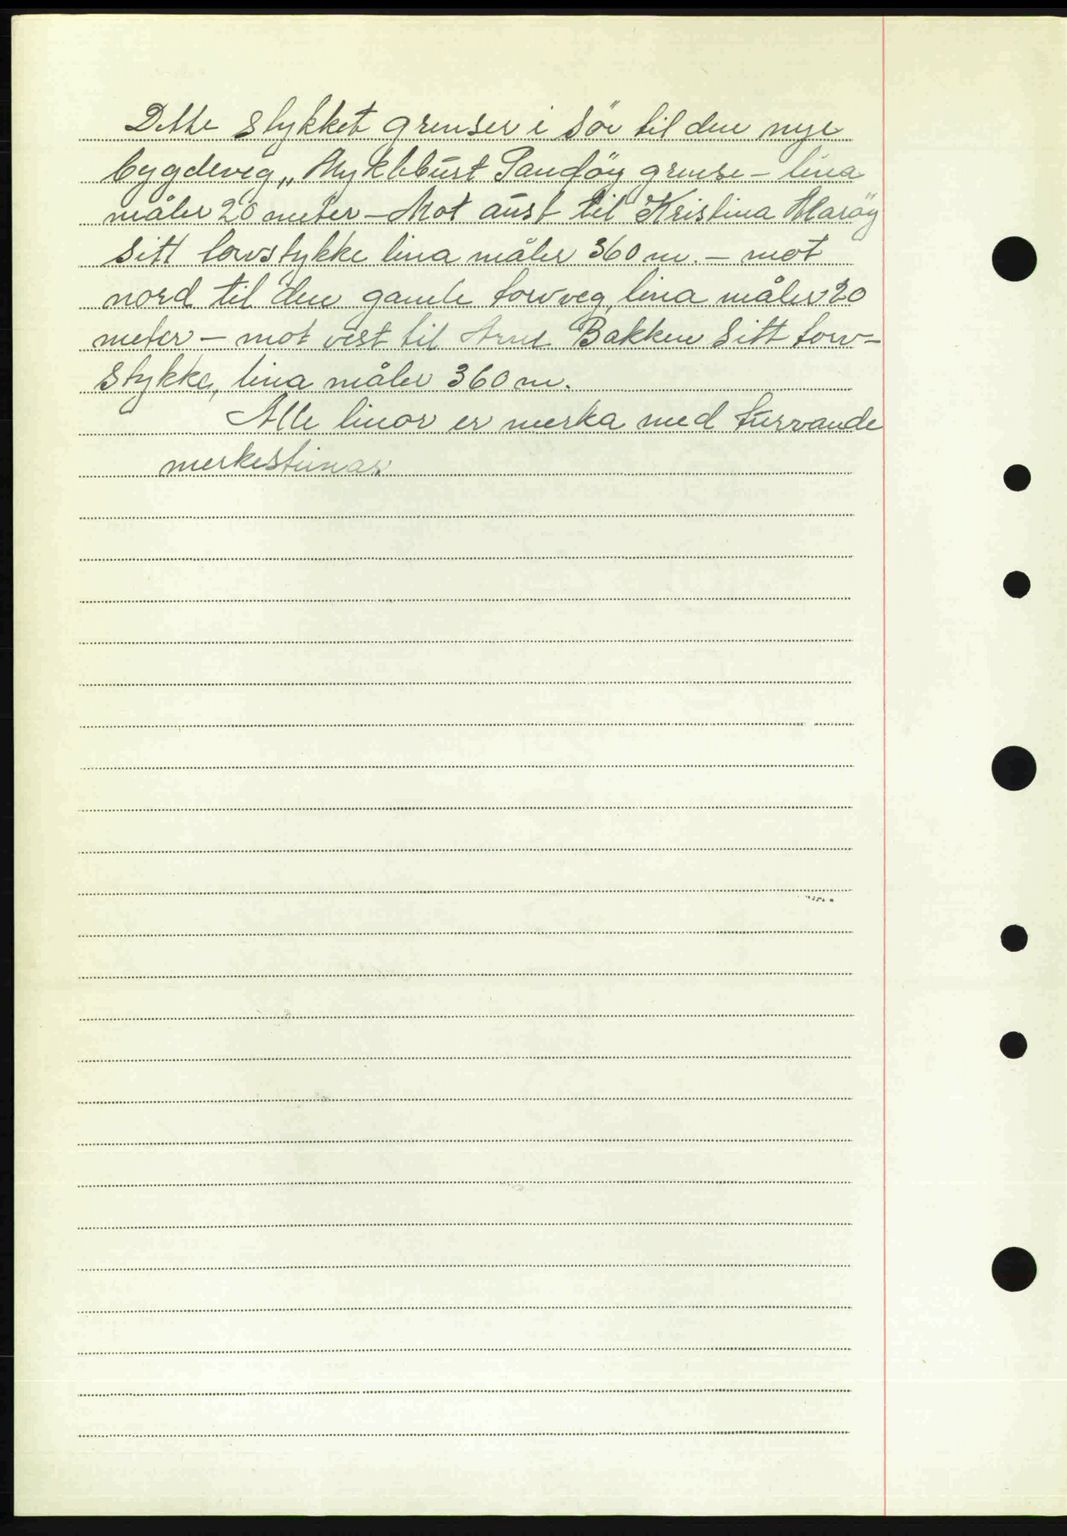 Dette stykket grenser i sör til den nye
bygdeveg „Myklebust Sandöy grense – lina
måler 20 meter – Mot aust til Kristina Maröy
sitt torvstykke lina måler 360 m. – mot
nord til den gamle torvveg, lina måler 20
meter – mot vest til Arne Bakken sitt torv-
stykke, lina måler 360 m.
Alle linor er merka med turvande
merkesteinar.